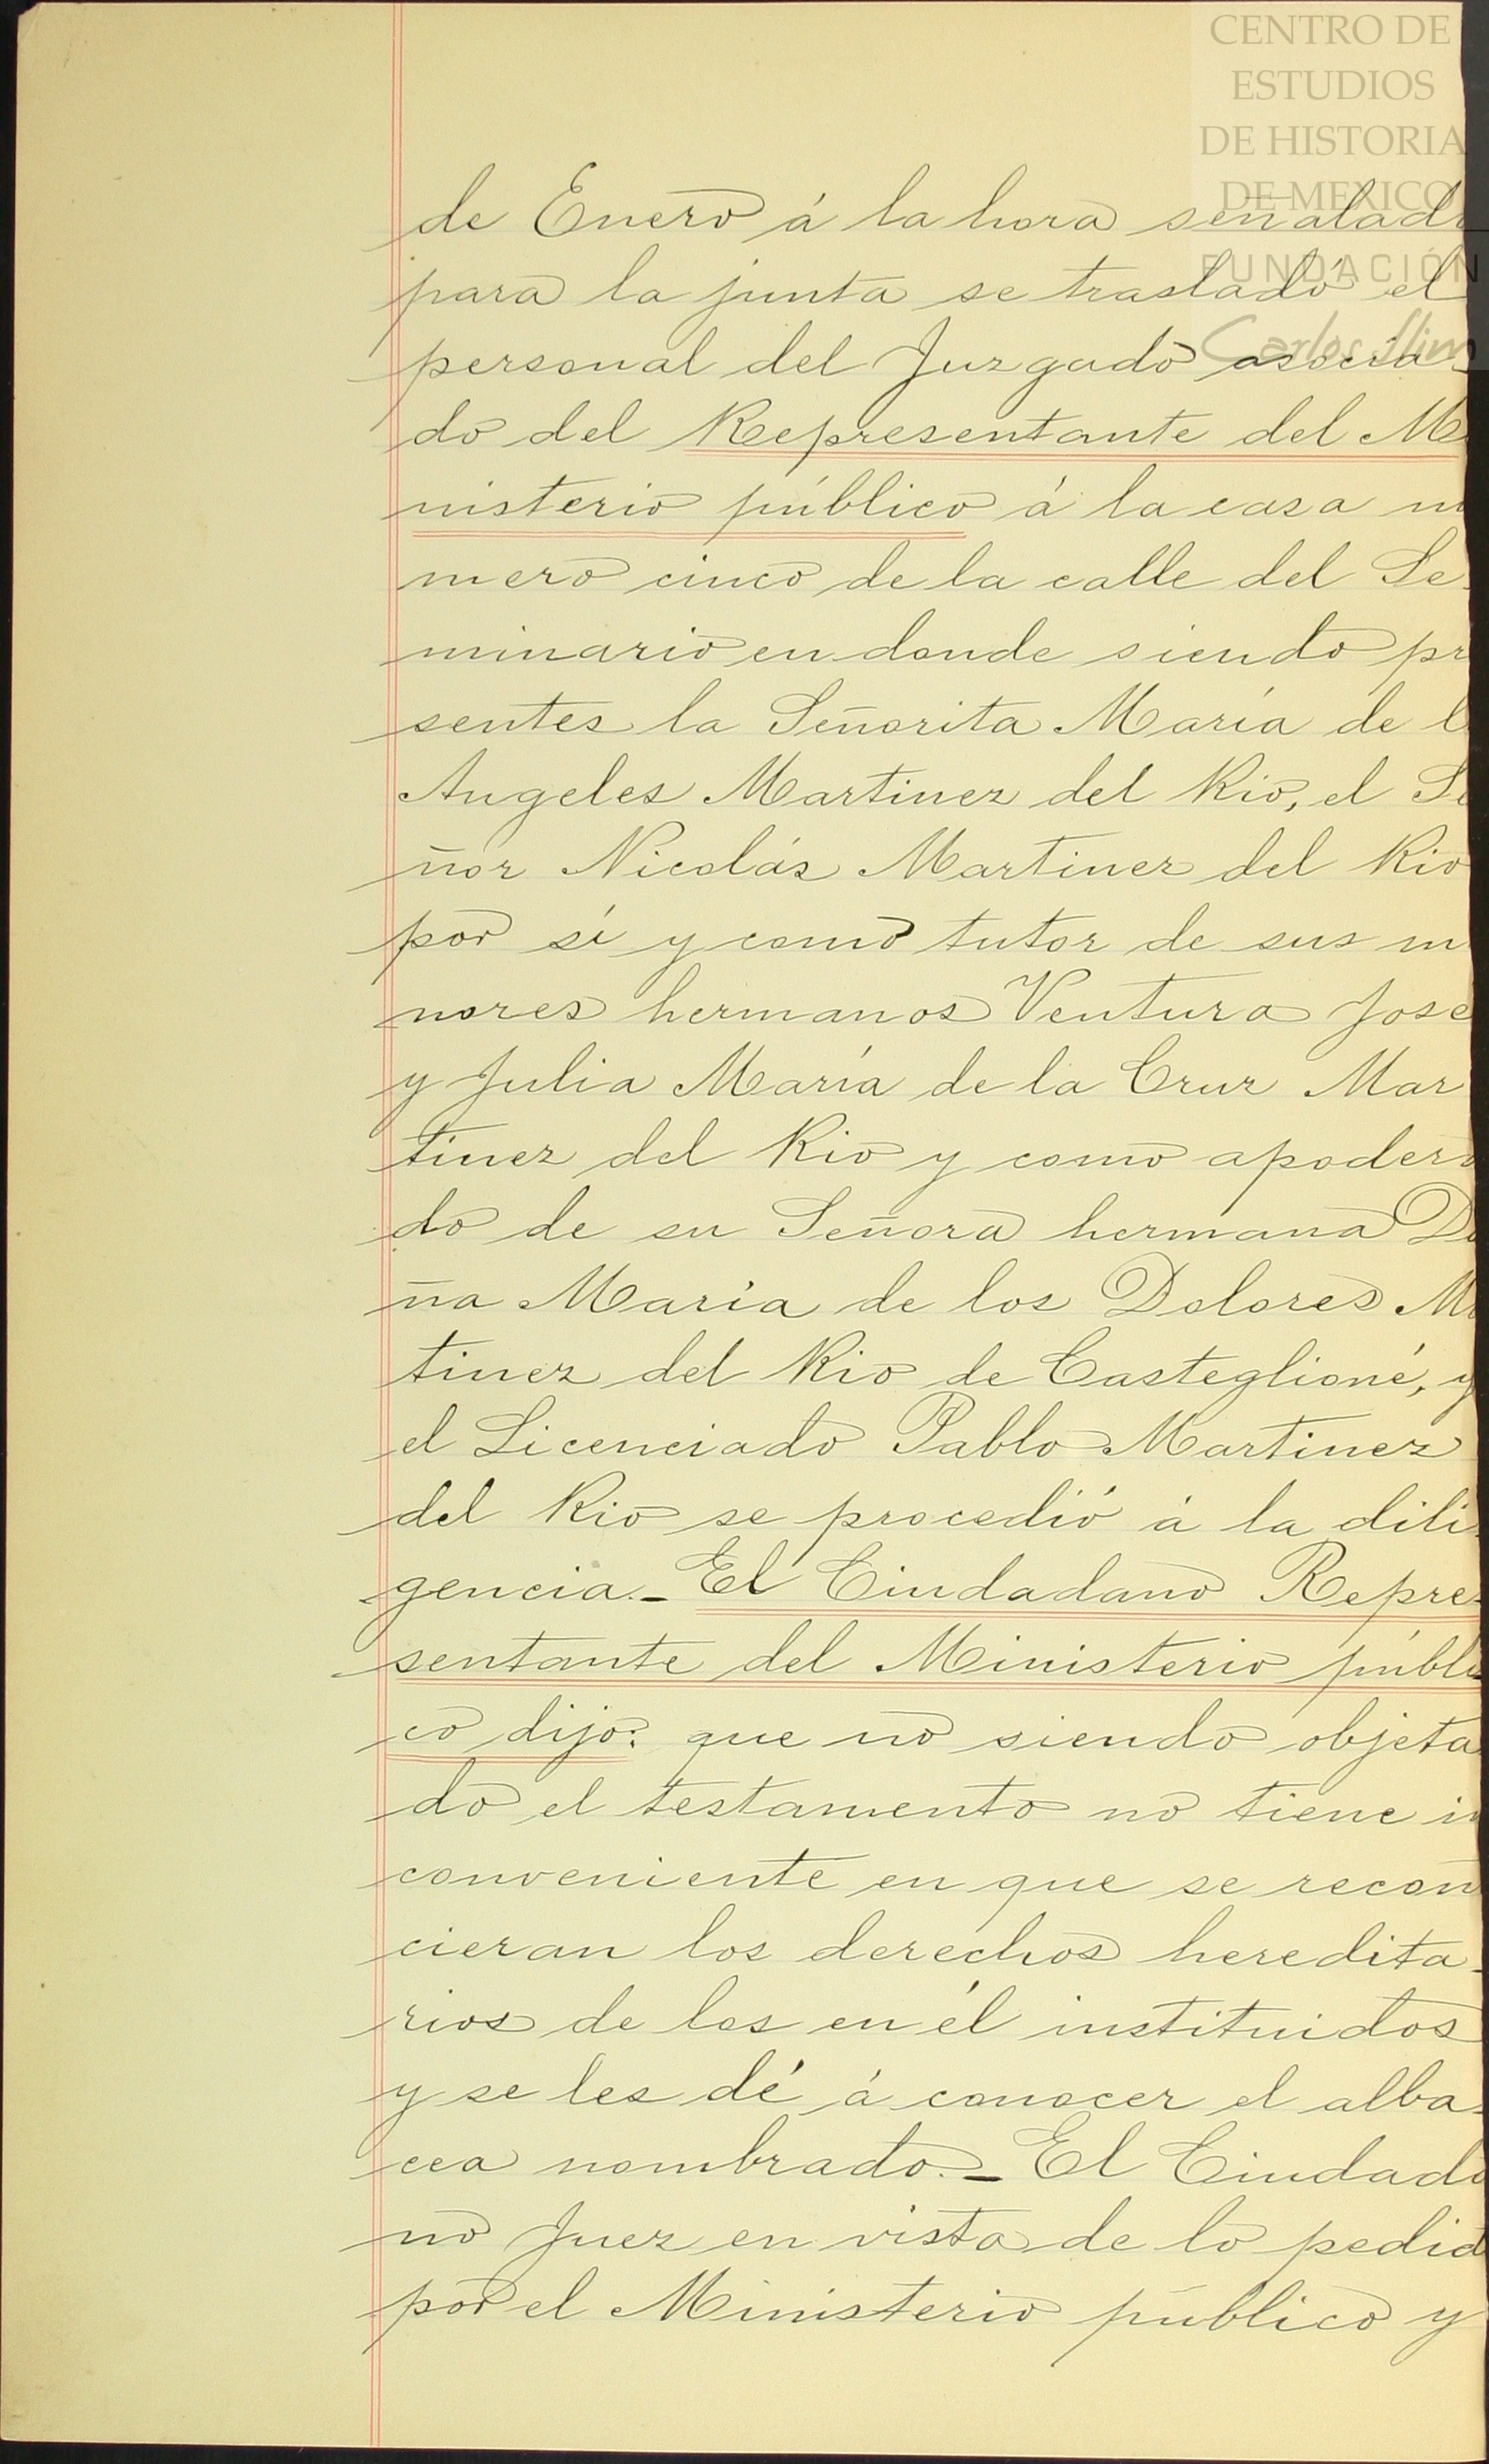 CENTRO DE
ESTUDIOS
DE HISTORIA
DE MEXICO
FUNDACIÓN
Carlos Slim
de Enero á la hora señalad
para la junta se trasladó el
personal del Juzgado asocia-
do del Representante del M
nisterio público á la casa n
mero cinco de la calle del Se-
minario en donde siendo pr
sentes la Señorita María de l
Angeles Martinez del Rio, el Se
ñor Nicolás Martinez del Rio
por sí y como tutor de sus m
nores hermanos Ventura José
y Julia María de la Cruz Mar
tinez del Rio y como apodera
do de su Señora hermana Do
ña María de los Dolores Ma
tinez del Rio de Casteglioné, y
el Licenciado Pablo Martinez
del Rio se procedió á la dili-
gencia.- El Ciudadano Repre-
sentante del Ministerio públi
co dijo: que no siendo objeta
do el testamento no tiene in
conveniente en que se recon
cieran los derechos heredita-
rios de los en él instituidos
y se les dé á conocer el alba-
cea nombrado.- El Ciudada
no Juez en vista de lo pedid
por el Ministerio público y